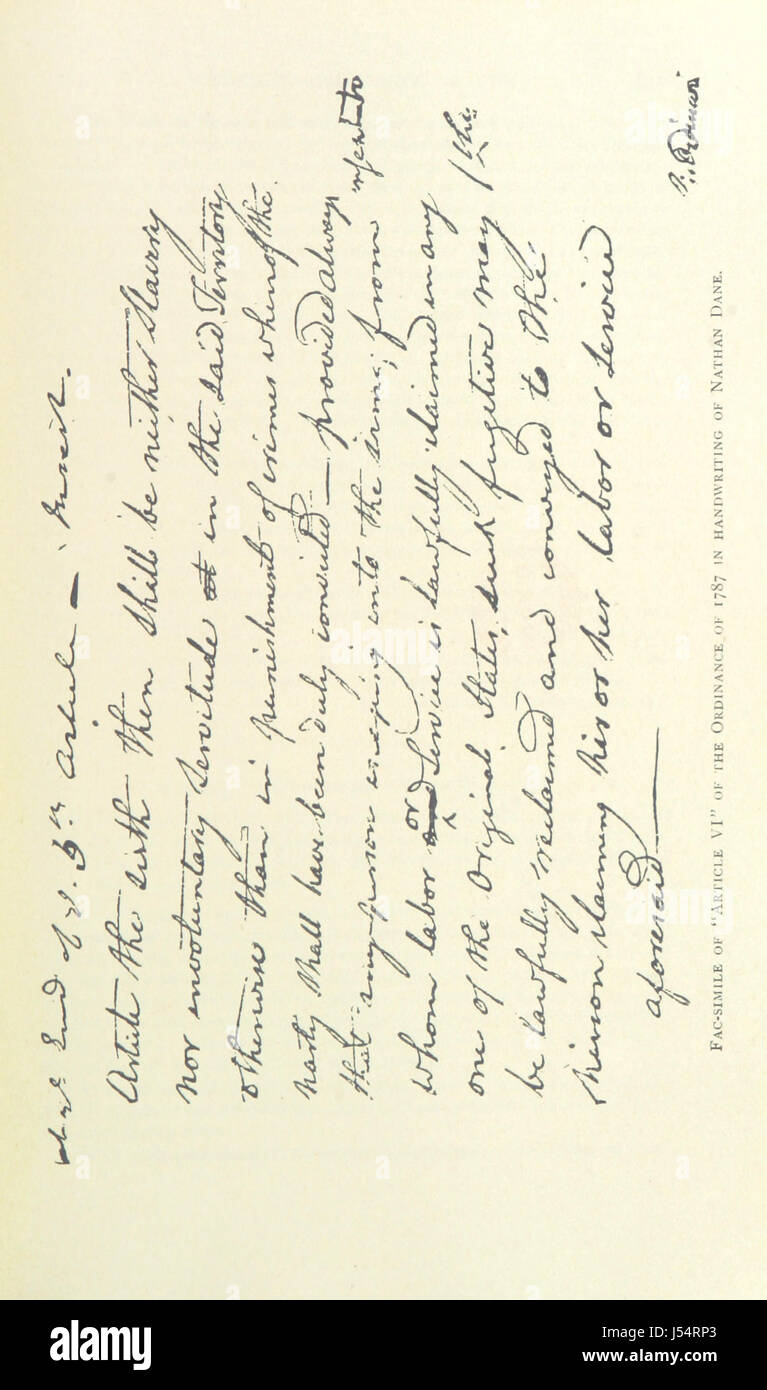 End of ye. 5th Article — insert.
Article the sixth There shall be neither Slavery
nor involuntary Servitude in the said Territory
otherwise than in punishment of crimes whereof the
party shall have been duly convicted — provided always
that any person escaping into the same, from
whom labor or Service is lawfully claimed in any
one of the Original States, such fugitive may
be lawfully reclaimed and conveyed to the
person claiming his or her labor or service
aforesaid —
FAC-SIMILE OF "ARTICLE VI" OF THE ORDINANCE OF 1787 IN HANDWRITING OF NATHAN DANE.
alamy
a
alamy stock photo
J54RP3
www.alamy.com